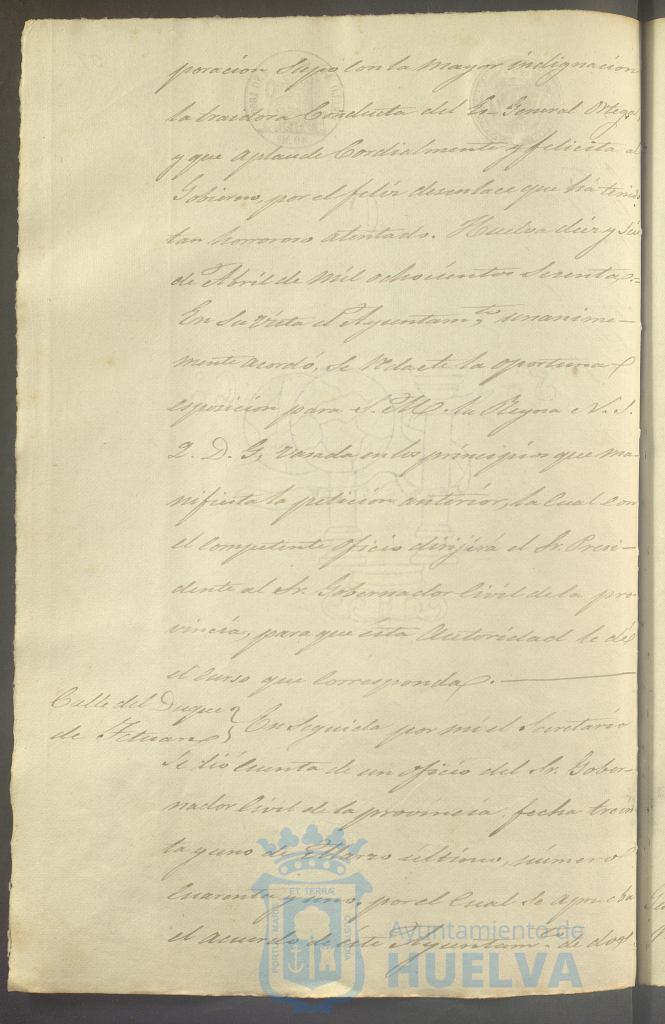 poracion supo con la mayor indignacion
la traidora Conducta del Ex General Ortega,
y que aplaude Cordialmente y felicita al
Gobierno, por el feliz desenlace que há tenido
tan horroroso atentado. Huelva diez y seis
de Abril de mil ochocientos sesenta =
En su vista el Ayuntam.to unanime-
mente acordó, se redacte la oportuna
esposicion para S. M. la Reyna N. S.
Q. D. G, vasada en los principios que ma-
nifiesta la peticion anterior, la cual con
el competente oficio dirijirá el Sr. Presi-
dente al Sr. Gobernador Civil de la pro
vincia, para que esta Autoridad le dé
el curso que corresponda. —
Calle del Duque
de Tetuan
En seguida por mi el Secretario
se dió cuenta de un oficio del Sr. Gober-
nador Civil de la provincia, fecha trein
ta y uno de Marzo último, número
cuarenta y uno, por el cual se aprueba
el acuerdo de este Ayuntam.to de doce
PORTUS MARIS ET TERRÆ CUSTODIA
Ayuntamiento de
HUELVA